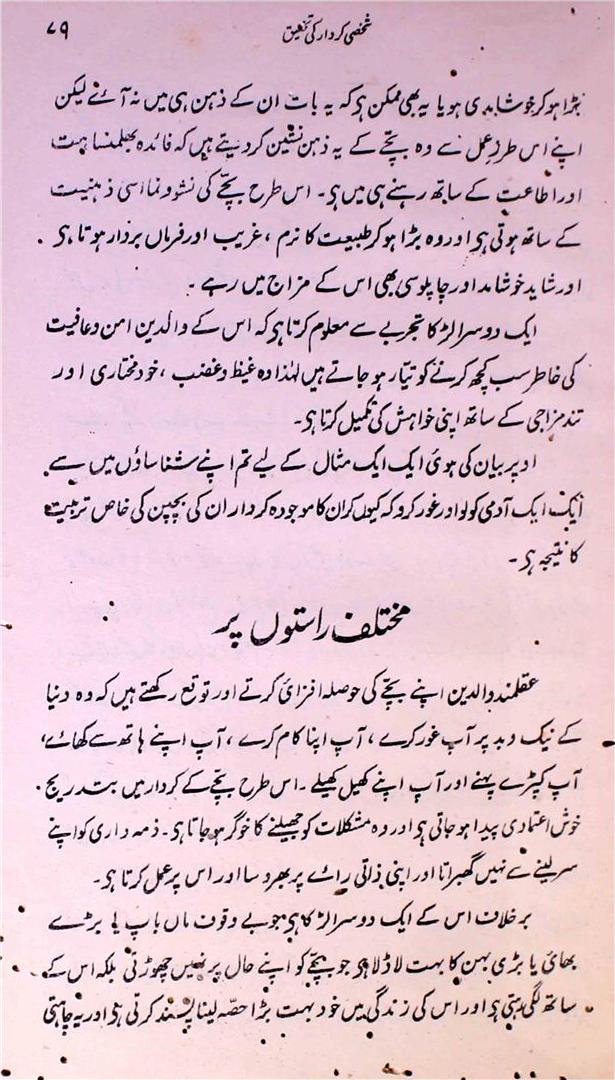 شخصی کردار کی تخلیق ۷۹
بڑا ہو کر خوشامدی ہو یا یہ بھی ممکن ہی کہ یہ بات ان کے ذہن ہی میں نہ آئے لیکن
اپنے اس طرزِ عمل سے وہ بچّے کے یہ ذہن نشین کر دیتے ہیں کہ فائدہ بھلمنساہت
اور اطاعت کے ساتھ رہنے ہی میں ہی۔ اس طرح بچّے کی نشو و نما اسی ذہنیت
کے ساتھ ہوتی ہی اور وہ بڑا ہو کر طبیعت کا نرم ، غریب اور فرماں بردار ہوتا ہی
اور شاید خوشامد اور چاپلوسی بھی اس کے مزاج میں رہے ۔
ایک دوسرا لڑکا تجربے سے معلوم کرتا ہی کہ اس کے والدین امن و عافیت
کی خاطر سب کچھ کرنے کو تیّار ہو جاتے ہیں لہٰذا وہ غیظ و غضب ، خود مختاری اور
تند مزاجی کے ساتھ اپنی خواہش کی تکمیل کرتا ہی۔
اوپر بیان کی ہوئی ایک ایک مثال کے لیے تم اپنے شناساؤں میں سے
ایک ایک آدمی کو لو اور غور کرو کہ کیوں کر ان کا موجودہ کردار ان کی بچپن کی خاص تربیت
کا نتیجہ ہی۔
مختلف راستوں پر
عقلمند والدین اپنے بچّے کی حوصلہ افزائی کرتے اور توقع رکھتے ہیں کہ وہ دنیا
کے نیک و بد پر آپ غور کرے ، آپ اپنا کام کرے ، آپ اپنے ہاتھ سے کھائے،
آپ کپڑے پہنے اور آپ اپنے کھیل کھیلے ۔ اس طرح بچّے کے کردار میں بتدریج
خوش اعتمادی پیدا ہو جاتی ہی اور وہ مشکلات کو جھیلنے کا خوگر ہو جاتا ہی۔ ذمہ داری کو اپنے
سر لینے سے نہیں گھبراتا اور اپنی ذاتی رائے پر بھروسا اور اس پر عمل کرتا ہی۔
برخلاف اس کے ایک دوسرا لڑکا ہی جو بے وقوف ماں باپ یا بڑے
بھائی یا بڑی بہن کا بہت لاڈلا ہی جو بچّے کو اپنے حال پر نہیں چھوڑتی بلکہ اس کے
ساتھ لگی رہتی ہی اور اس کی زندگی میں خود بہت بڑا حصّہ لینا پسند کرتی ہی اور یہ چاہتی